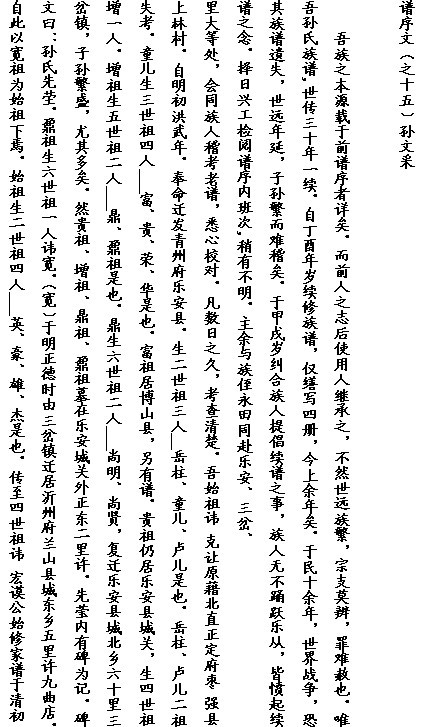 谱序文（之十五）孙文采
吾族之本源载于前谱序者详矣。而前人之志后使用人继承之，不然世远族繁，宗支莫辨，罪难赦也。唯
吾孙氏族谱，世传三十年一续。自丁酉年岁续修族谱，仅缮写四册，今上余年矣。于民十余年，世界战争，恐
其族谱遗失，世远年延，子孙繁而难稽矣。于甲戌岁纠合族人提倡续谱之事，族人无不踊跃乐从，皆愤起续
谱之念。择日兴工检阅谱序内班次，稍有不明。主余与族侄永田同赴乐安、三岔、
里大等处，会同族人稽考老谱，悉心校对。凡数日之久，考查清楚。吾始祖讳 克让原藉北直正定府枣 强县
上林村。自明初洪武年。奉命迁发青州府乐安县。生二世祖三人__岳柱、童儿、卢儿是也。岳柱、卢儿二祖
失考。童儿生三世祖四人__富、贵、荣、华是也。富祖居博山县，另有谱。贵祖仍居乐安县城关，生四世祖
增一人。增祖生五世祖二人__鼎、鼐祖是也。鼎生六世祖二人__尚明、尚贤，复迁乐安县城北乡六十里三
岔镇，子孙繁盛，尤其多矣。然贵祖、增祖、鼎祖、鼐祖墓在乐安城关外正东二里许。先茔内有碑为记。碑
文曰：孙氏先茔。鼐祖生六世祖一人讳宽。（宽）于明正德时由三岔镇迁居沂州府兰山县城东乡五里许九曲店。
自此以宽祖为始祖下焉。始祖生二世祖四人__英、豪、雄、杰是也。传至四世祖讳 宏谟公始修家谱于清初